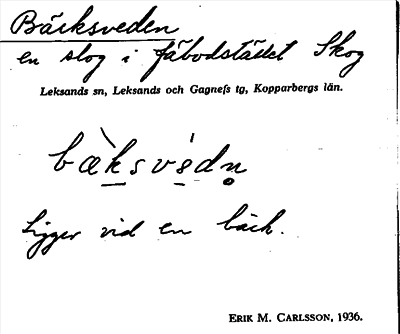 Bäcksveden
en slog i fäbodstället Skog
Leksands sn, Leksands och Gagnefs tg, Kopparbergs län.
bæ̀ksvedn̥
Ligger vid en bäck.
ERIK M. CARLSSON, 1936.